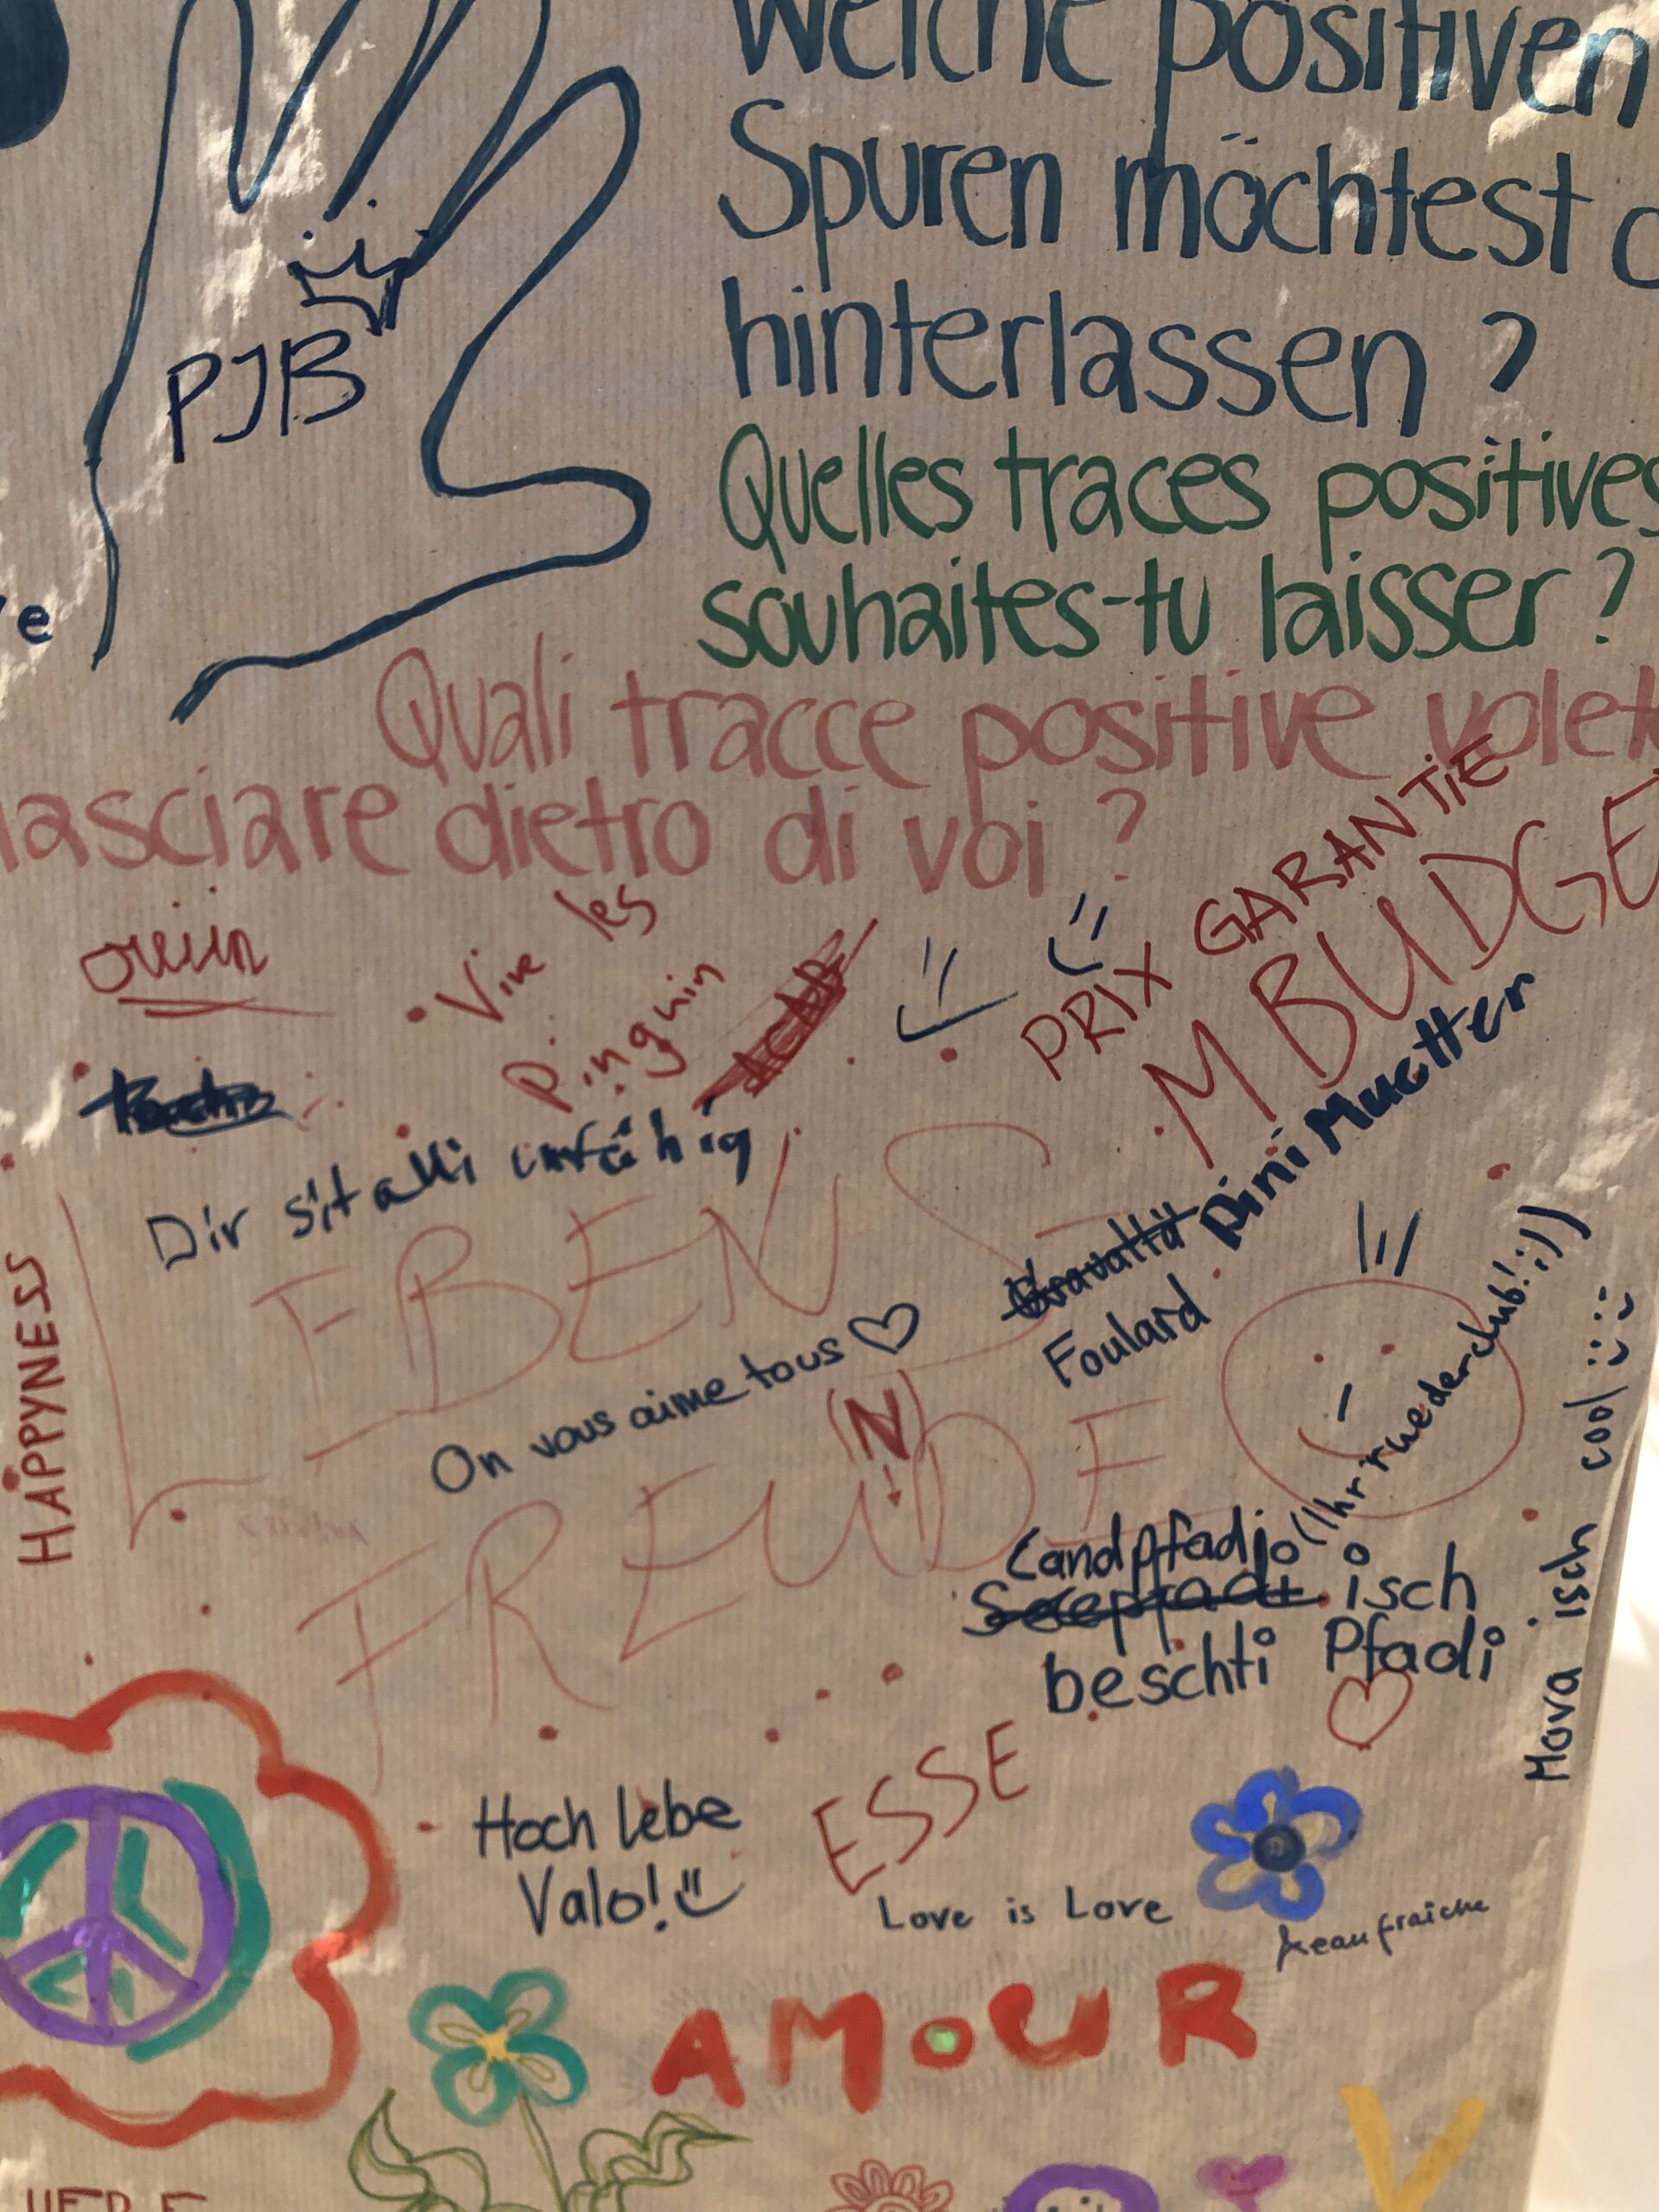 Welche positiven
Spuren möchtest d
hinterlassen ?
PJB
Quelles traces positives
souhaites-tu laisser ?
e
Quali tracce positive volet
lasciare dietro di voi ?
PRIX GARANTIE
M BUDGE
Vive les
Pinguin
ACAB
Dini Muetter
Dir sit alli unfähig
LEBENS
Foulard
On vous aime tous ♡
HAPPYNESS
(N)
FREUDE
(Ihr ruederclub! ;))
Landpfadi
isch
beschti Pfadi
Mova isch cool
Hoch lebe
Valo!
ESSE
Love is Love
AMOUR
V